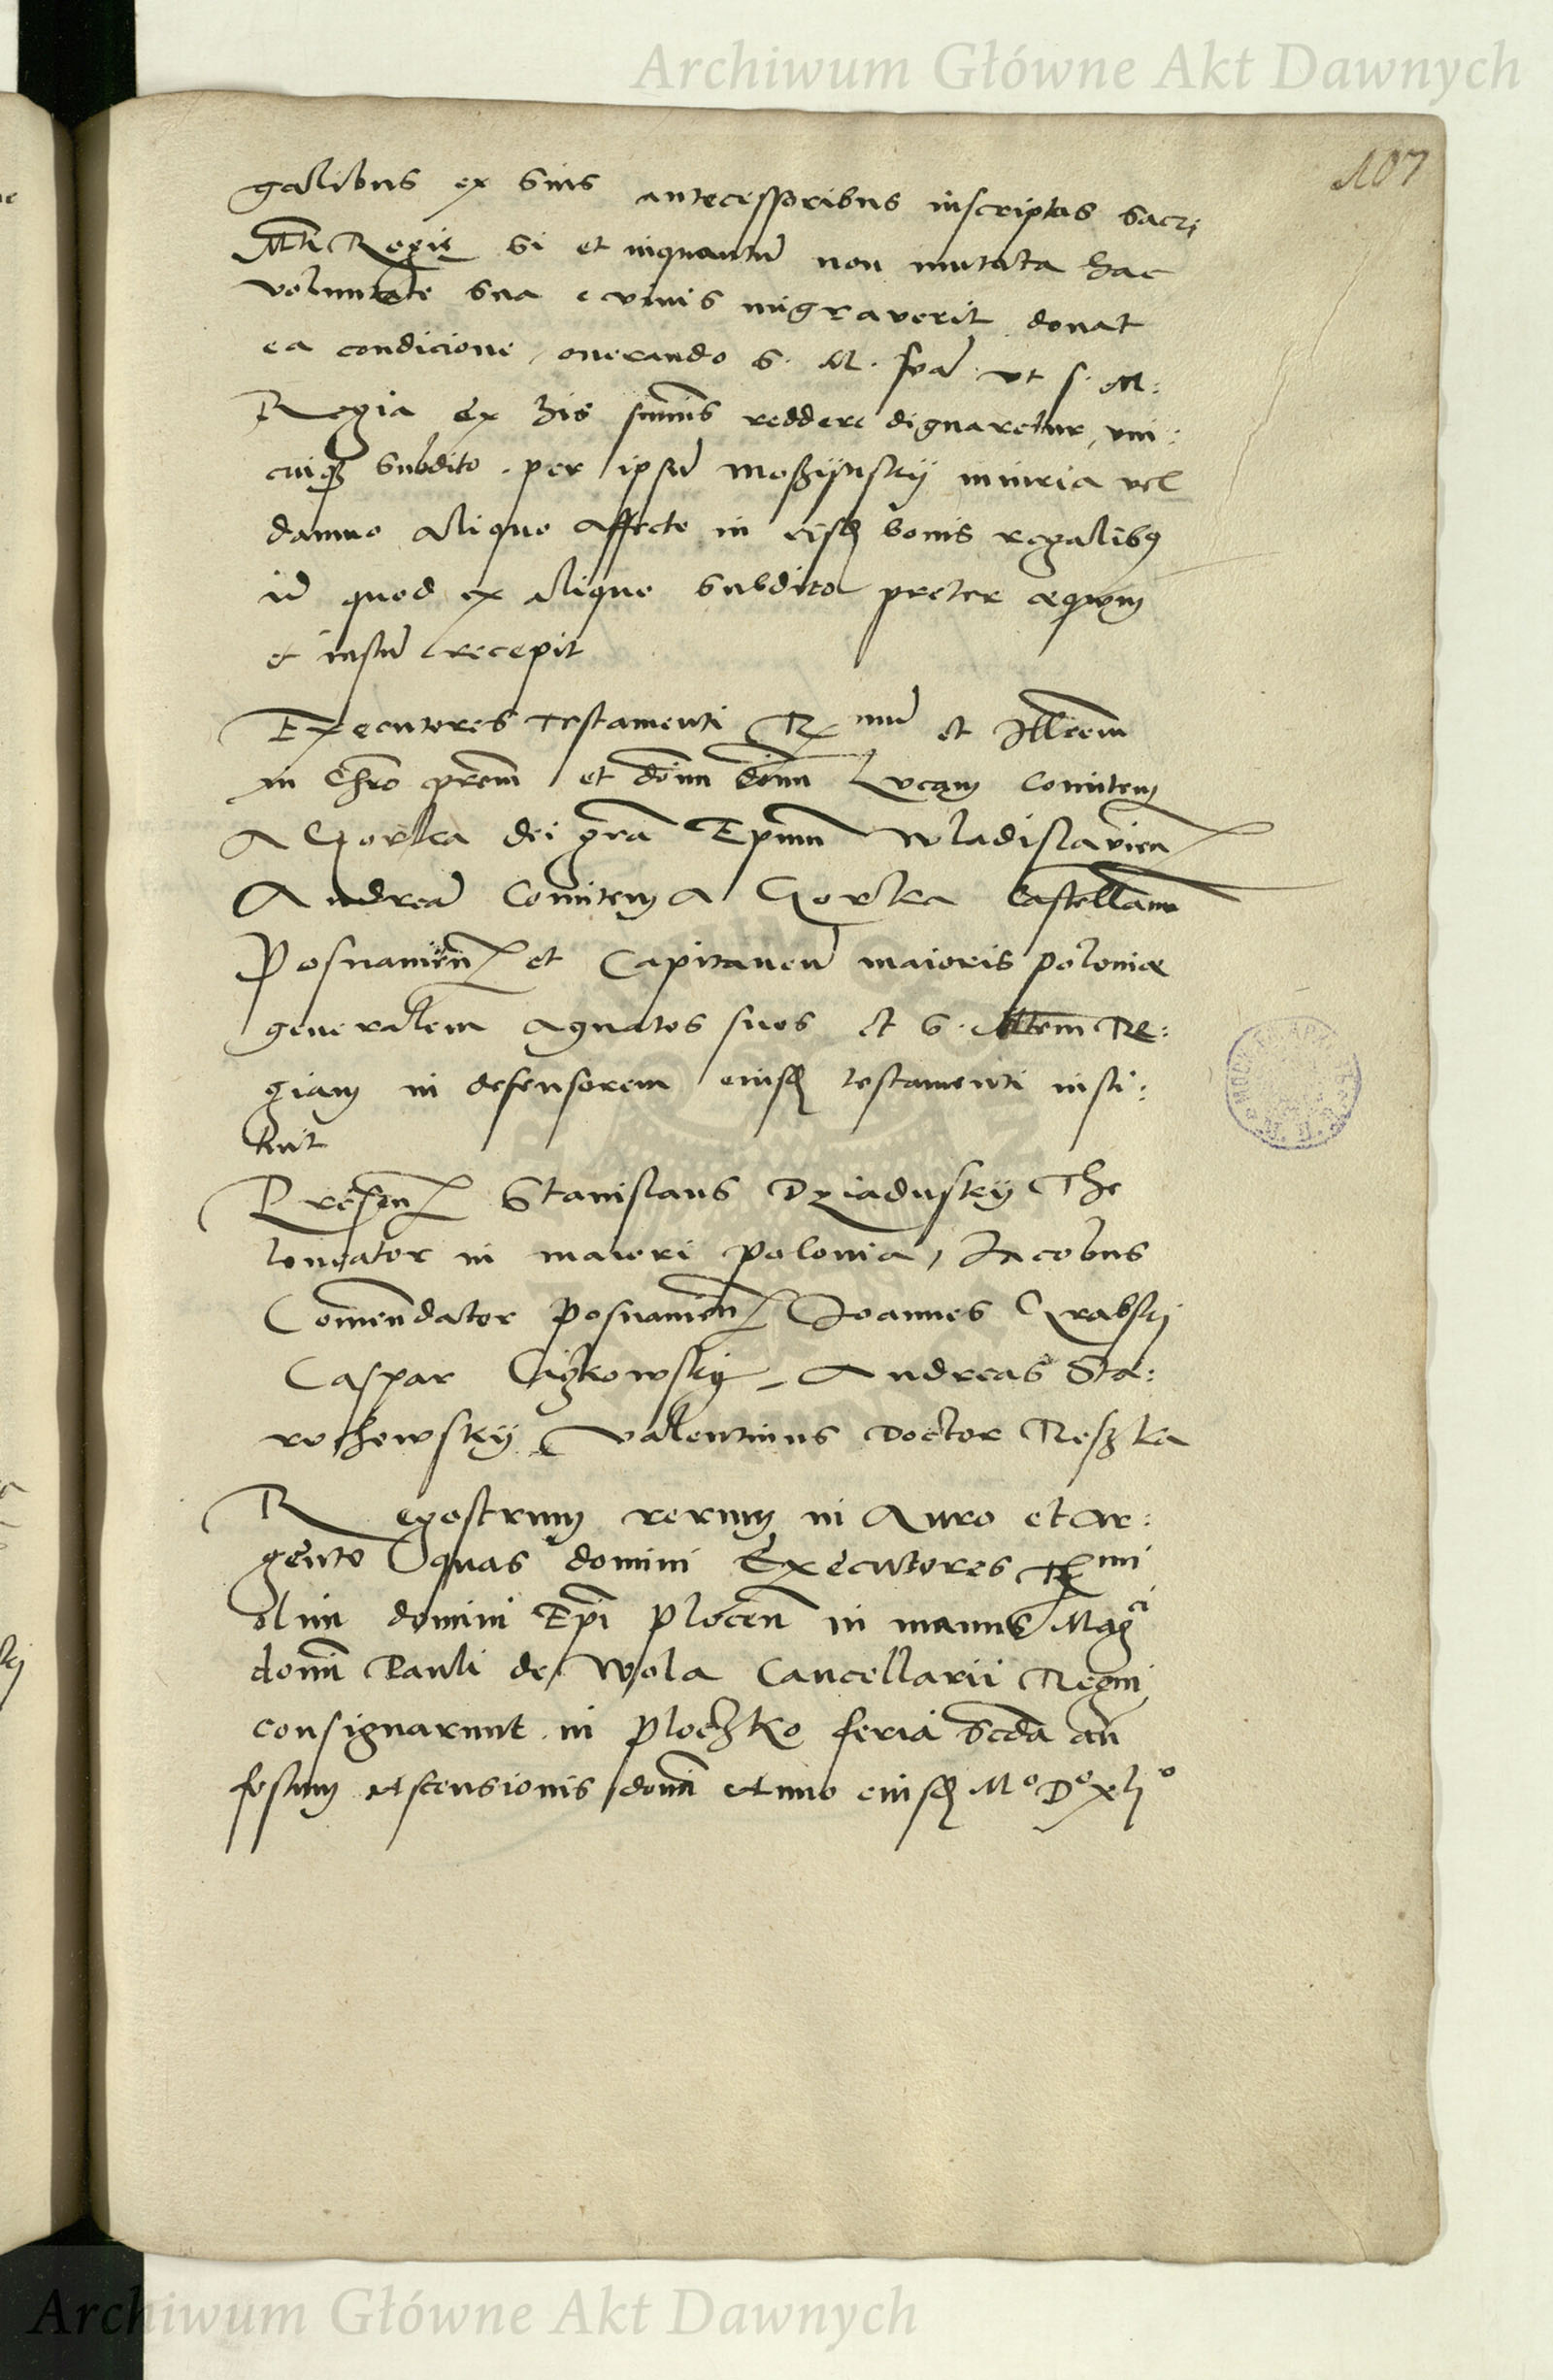 Archiwum Główne Akt Dawnych
107
galibus ex suis antecessoribus inscriptas Sacr:
Mti Regie si et inquantu non mutata hac
voluntate sua e vivis migraverit donat
ea condicione onerando S. M. sua ut S. M:
Regia ex his summis reddere dignaretur, uni:
cuiq subdito per ipsu Moßijnskij iniuria vel
damno aliquo affecto in eisd bonis regalibq
id quod ex aliquo subdito preter aequm
et iustu recepit
Executores testamenti Rmu et Illrem
in Chro prem et domn domn Lucam Comitem
a Gorka dei gra Epum Wladislavien
Andrea Comitem a Gorka Castellanu
Posnamien et Capitaneu maioris Poloniae
generalem agnatos suos et S. Mtem Re:
giam in defensorem eiusd testamenti insti:
tuit
Presen Stanislaus Dziaduskij The
loneator in maiori Polonia, Iacobus
Comendator Posnamien Ioannes Grabskj
Caspar Andreas Sta:
rochowskij Valentinus Doctor Reßka
Regestrum rerum in Auro et ar:
gento quas domini Executores Rmi
olim domini Epi Plocen in manus Magci
domi Pauli de Wola Cancellarii Regni
consignarunt in Ploczko feria scda an
festum Ascensionis domi Anno eiusd Mo Do xljo
Archiwum Główne Akt Dawnych